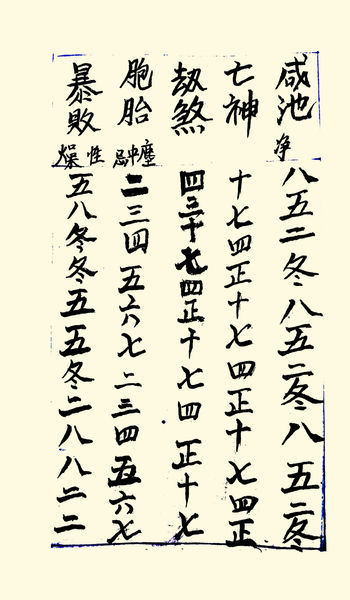 咸池
净
八五二冬八五二冬八五二冬
亡神
十七四正十七四正十七四正
刼煞
四三十七四正十七四正十七
胞胎
二三四五六七二三四五六七
暴敗
性燥
五八冬冬五五冬二八八二二